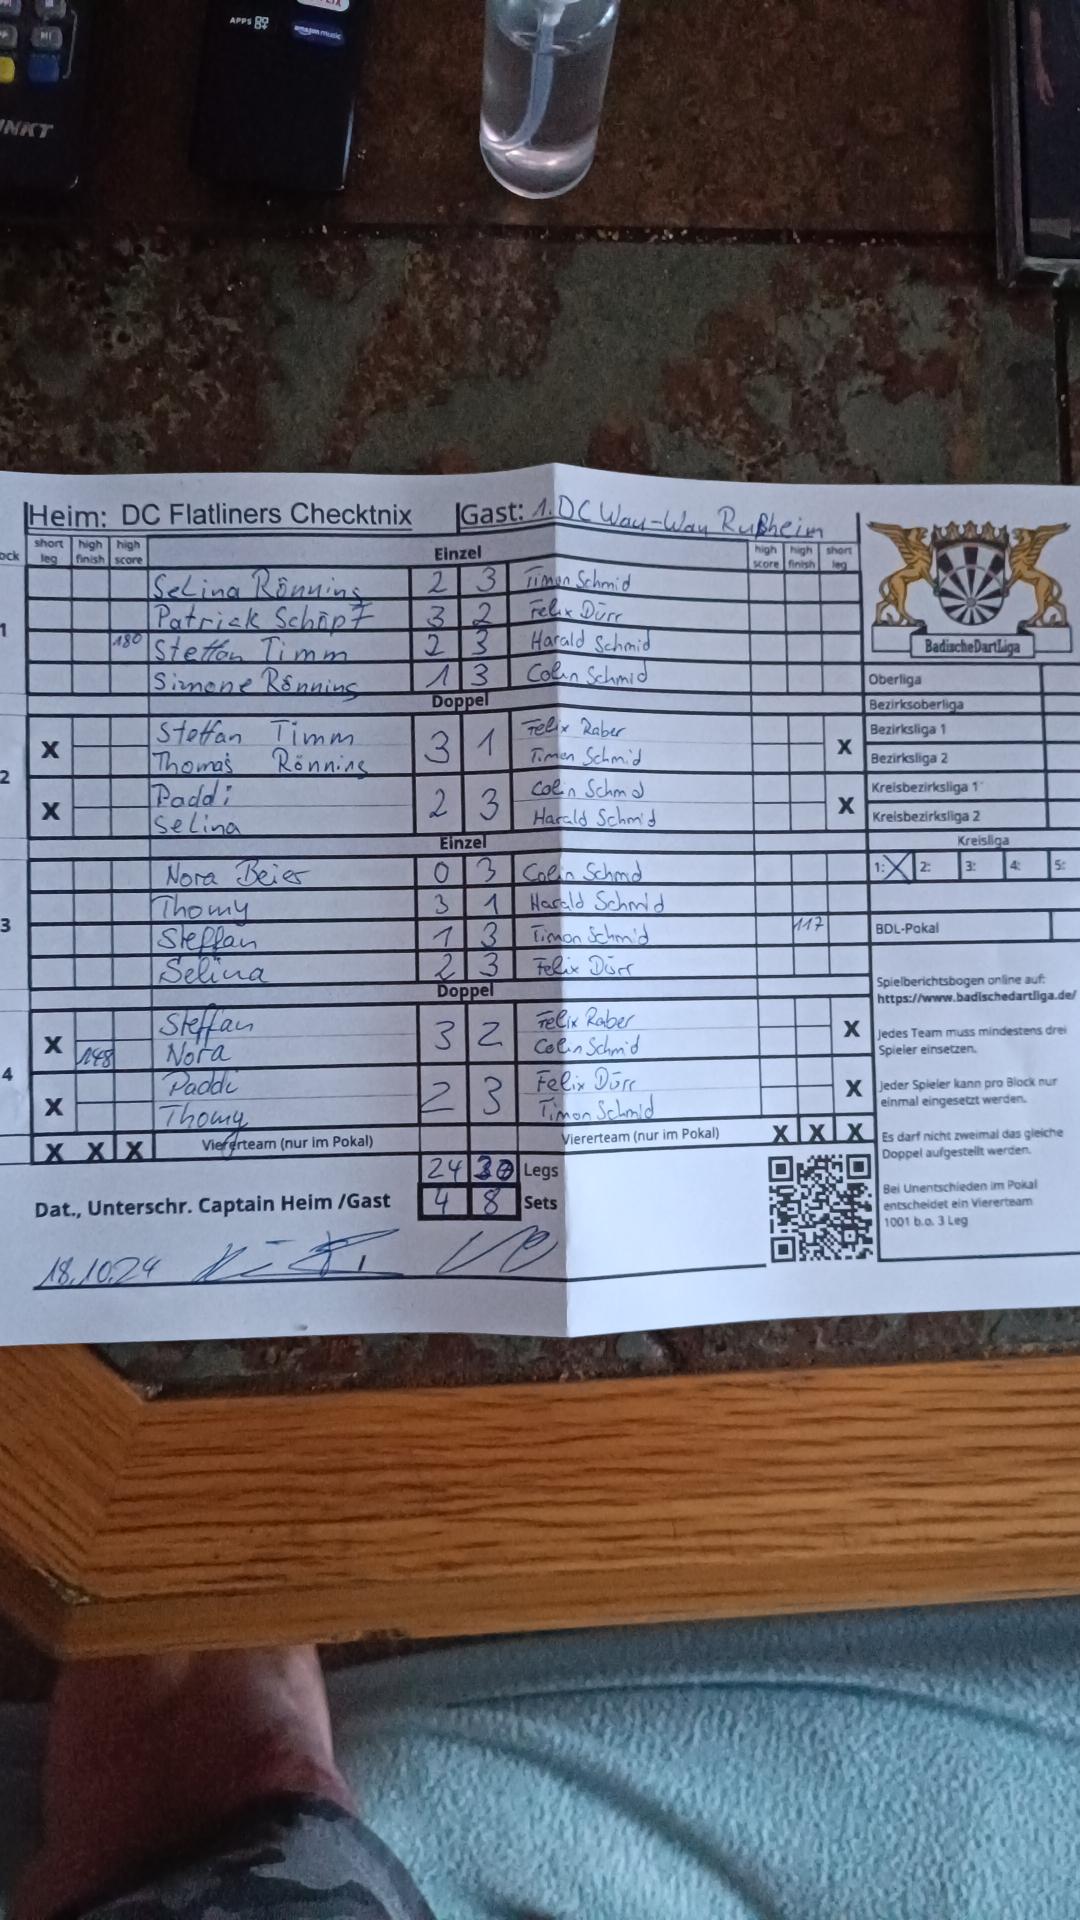 APPS
amazon music
NKT
Heim: DC Flatliners Checktnix Gast: 1. DC Way-Way Rußheim
ock short leg high finish high score Einzel high score high finish short leg
1 Selina Rönning 2 3 Timon Schmid
Patrick Schöpf 3 2 Felix Dürr
180 Steffan Timm 2 3 Harald Schmid
Simone Rönning 1 3 Colin Schmid
Doppel
2 X Steffan Timm 3 1 Felix Raber X
Thomas Rönning Timon Schmid
X Paddi 2 3 Colin Schmd X
Selina Harald Schmid
Einzel
3 Nora Beier 0 3 Colin Schmd
Thomy 3 1 Harald Schmid
Steffan 1 3 Timon Schmid 117
Selina 2 3 Felix Dürr
Doppel
4 X Steffan 3 2 Felix Raber X
148 Nora Colin Schmid
X Paddi 2 3 Felix Dürr X
Thomy Timon Schmid
X X X Viererteam (nur im Pokal) Viererteam (nur im Pokal) X X X
24 30 Legs
Dat., Unterschr. Captain Heim /Gast 4 8 Sets
18.10.24
BadischeDartLiga
Oberliga
Bezirksoberliga
Bezirksliga 1
Bezirksliga 2
Kreisbezirksliga 1
Kreisbezirksliga 2
Kreisliga
1: X 2: 3: 4: 5:
BDL-Pokal
Spielberichtsbogen online auf:
https://www.badischedartliga.de/
Jedes Team muss mindestens drei
Spieler einsetzen.
Jeder Spieler kann pro Block nur
einmal eingesetzt werden.
Es darf nicht zweimal das gleiche
Doppel aufgestellt werden.
Bei Unentschieden im Pokal
entscheidet ein Viererteam
1001 b.o. 3 Leg